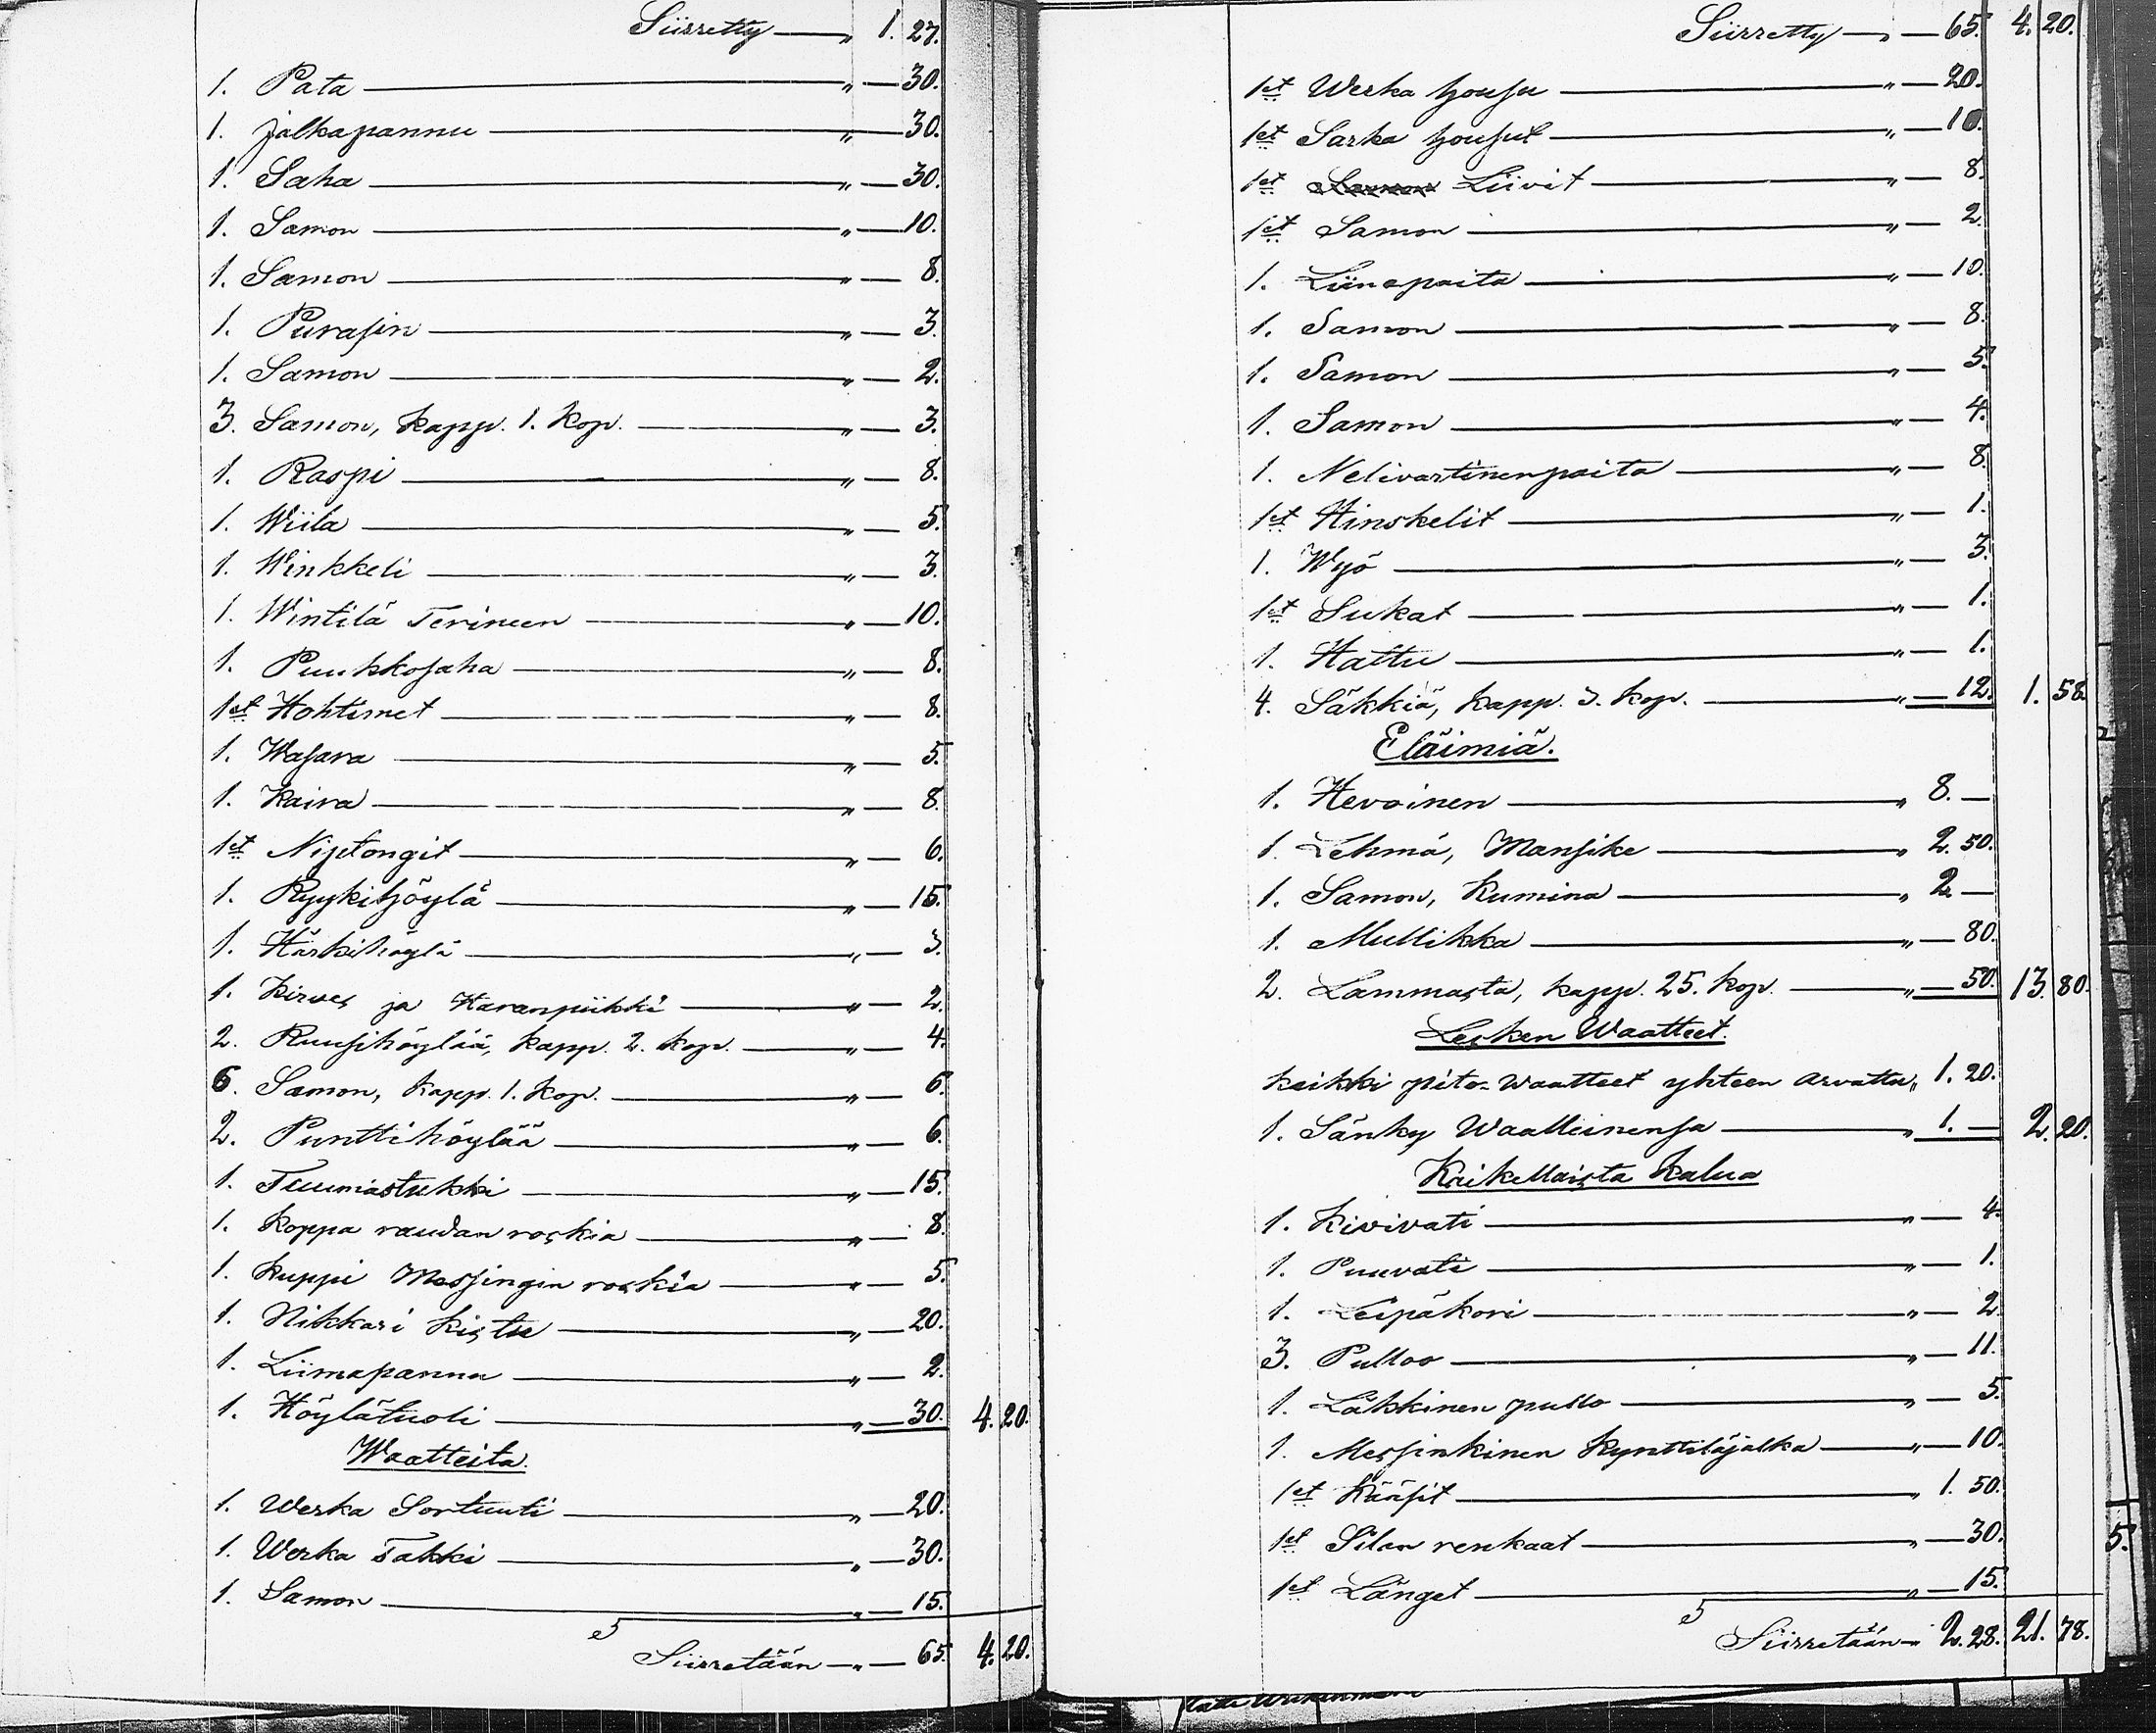 Siirretty — „ 1. 27.
1. Pata — „ — 30.
1. jalkapannu — „ — 30.
1. Saha — „ — 30.
1. Samon — „ — 10.
1. Samon — „ — 8.
1. Purasin — „ — 3.
1. Samon — „ — 2.
3. Samon, kapp. 1. kop. — „ — 3.
1. Raspi — „ — 8.
1. Wiila — „ — 5.
1. Winkkeli — „ — 3.
1. Wintilä Terineen — „ — 10.
1. Puukkosaha — „ — 8.
1et Hohtimet — „ — 8.
1. Wasara — „ — 5.
1. Kaira — „ — 8.
1et Niptongit — „ — 6.
1. Ryykihöylä — „ — 15.
1. Härkihöylä — „ — 3.
1. Kirves ja Haranpiikki — „ — 2.
2. Ruusihöylää, kapp. 2. kop. — „ — 4.
6. Samon, kapp. 1. kop. — „ — 6.
2. Punttihöylää — „ — 6.
1. Tuumastukki — „ — 15.
1. Koppa raudan roskia — „ — 8.
1. Kuppi Messingin roskia — „ — 5.
1. Nikkari kistu — „ — 20.
1. Liimapannu — „ — 2.
1. Höylätuoli — „ — 30. 4. 20.
Waatteita.
1. Werka Sortuuti — „ — 20.
1. Werka Takki — „ — 30.
1. Samon — „ — 15.
Siirretään — „ — 65. 4. 20.
Siirretty — „ — 65. 4. 20.
1et Werka housu — „ — 20.
1et Sarka housut — „ — 10.
1et Samon Liivit — „ — 8.
1et Samon — „ — 2.
1. Liinapaita — „ — 10.
1. Samon — „ — 8.
1. Samon — „ — 5.
1. Samon — „ — 4.
1. Nelivartinenpaita — „ — 8.
1et Hinskelit — „ — 1.
1. Wyö — „ — 3.
1et Sukat — „ — 1.
1. Hattu — „ — 1.
4. Säkkiä, kapp. 3. kop. — „ — 12. 1. 58.
Eläimiä.
1. Hevoinen — „ 8. —
1. Lehmä, Mansike — „ 2. 50.
1. Samon, Kumina — „ 2. —
1. Mullikka — „ — 80.
2. Lammasta, kapp. 25. kop. — „ — 50. 13. 80.
Lesken Waatteet.
kaikki pito-waatteet yhteen arvattu „ 1. 20.
1. Sänky Waatteinensa — „ 1. — 2. 20.
Kaikellaista Kalua
1. Kivivati — „ — 4.
1. Puuvati — „ — 1.
1. Leipäkori — „ — 2.
3. Pulloo — „ — 11.
1. Läkkinen pullo — „ — 5.
1. Messinkinen kynttiläjalka — „ — 10.
1et Rääsit — „ 1. 50.
1et Silan renkaat — „ — 30.
1et Länget — „ — 15.
Siirretään — „ 2. 28. 21. 78.
5.